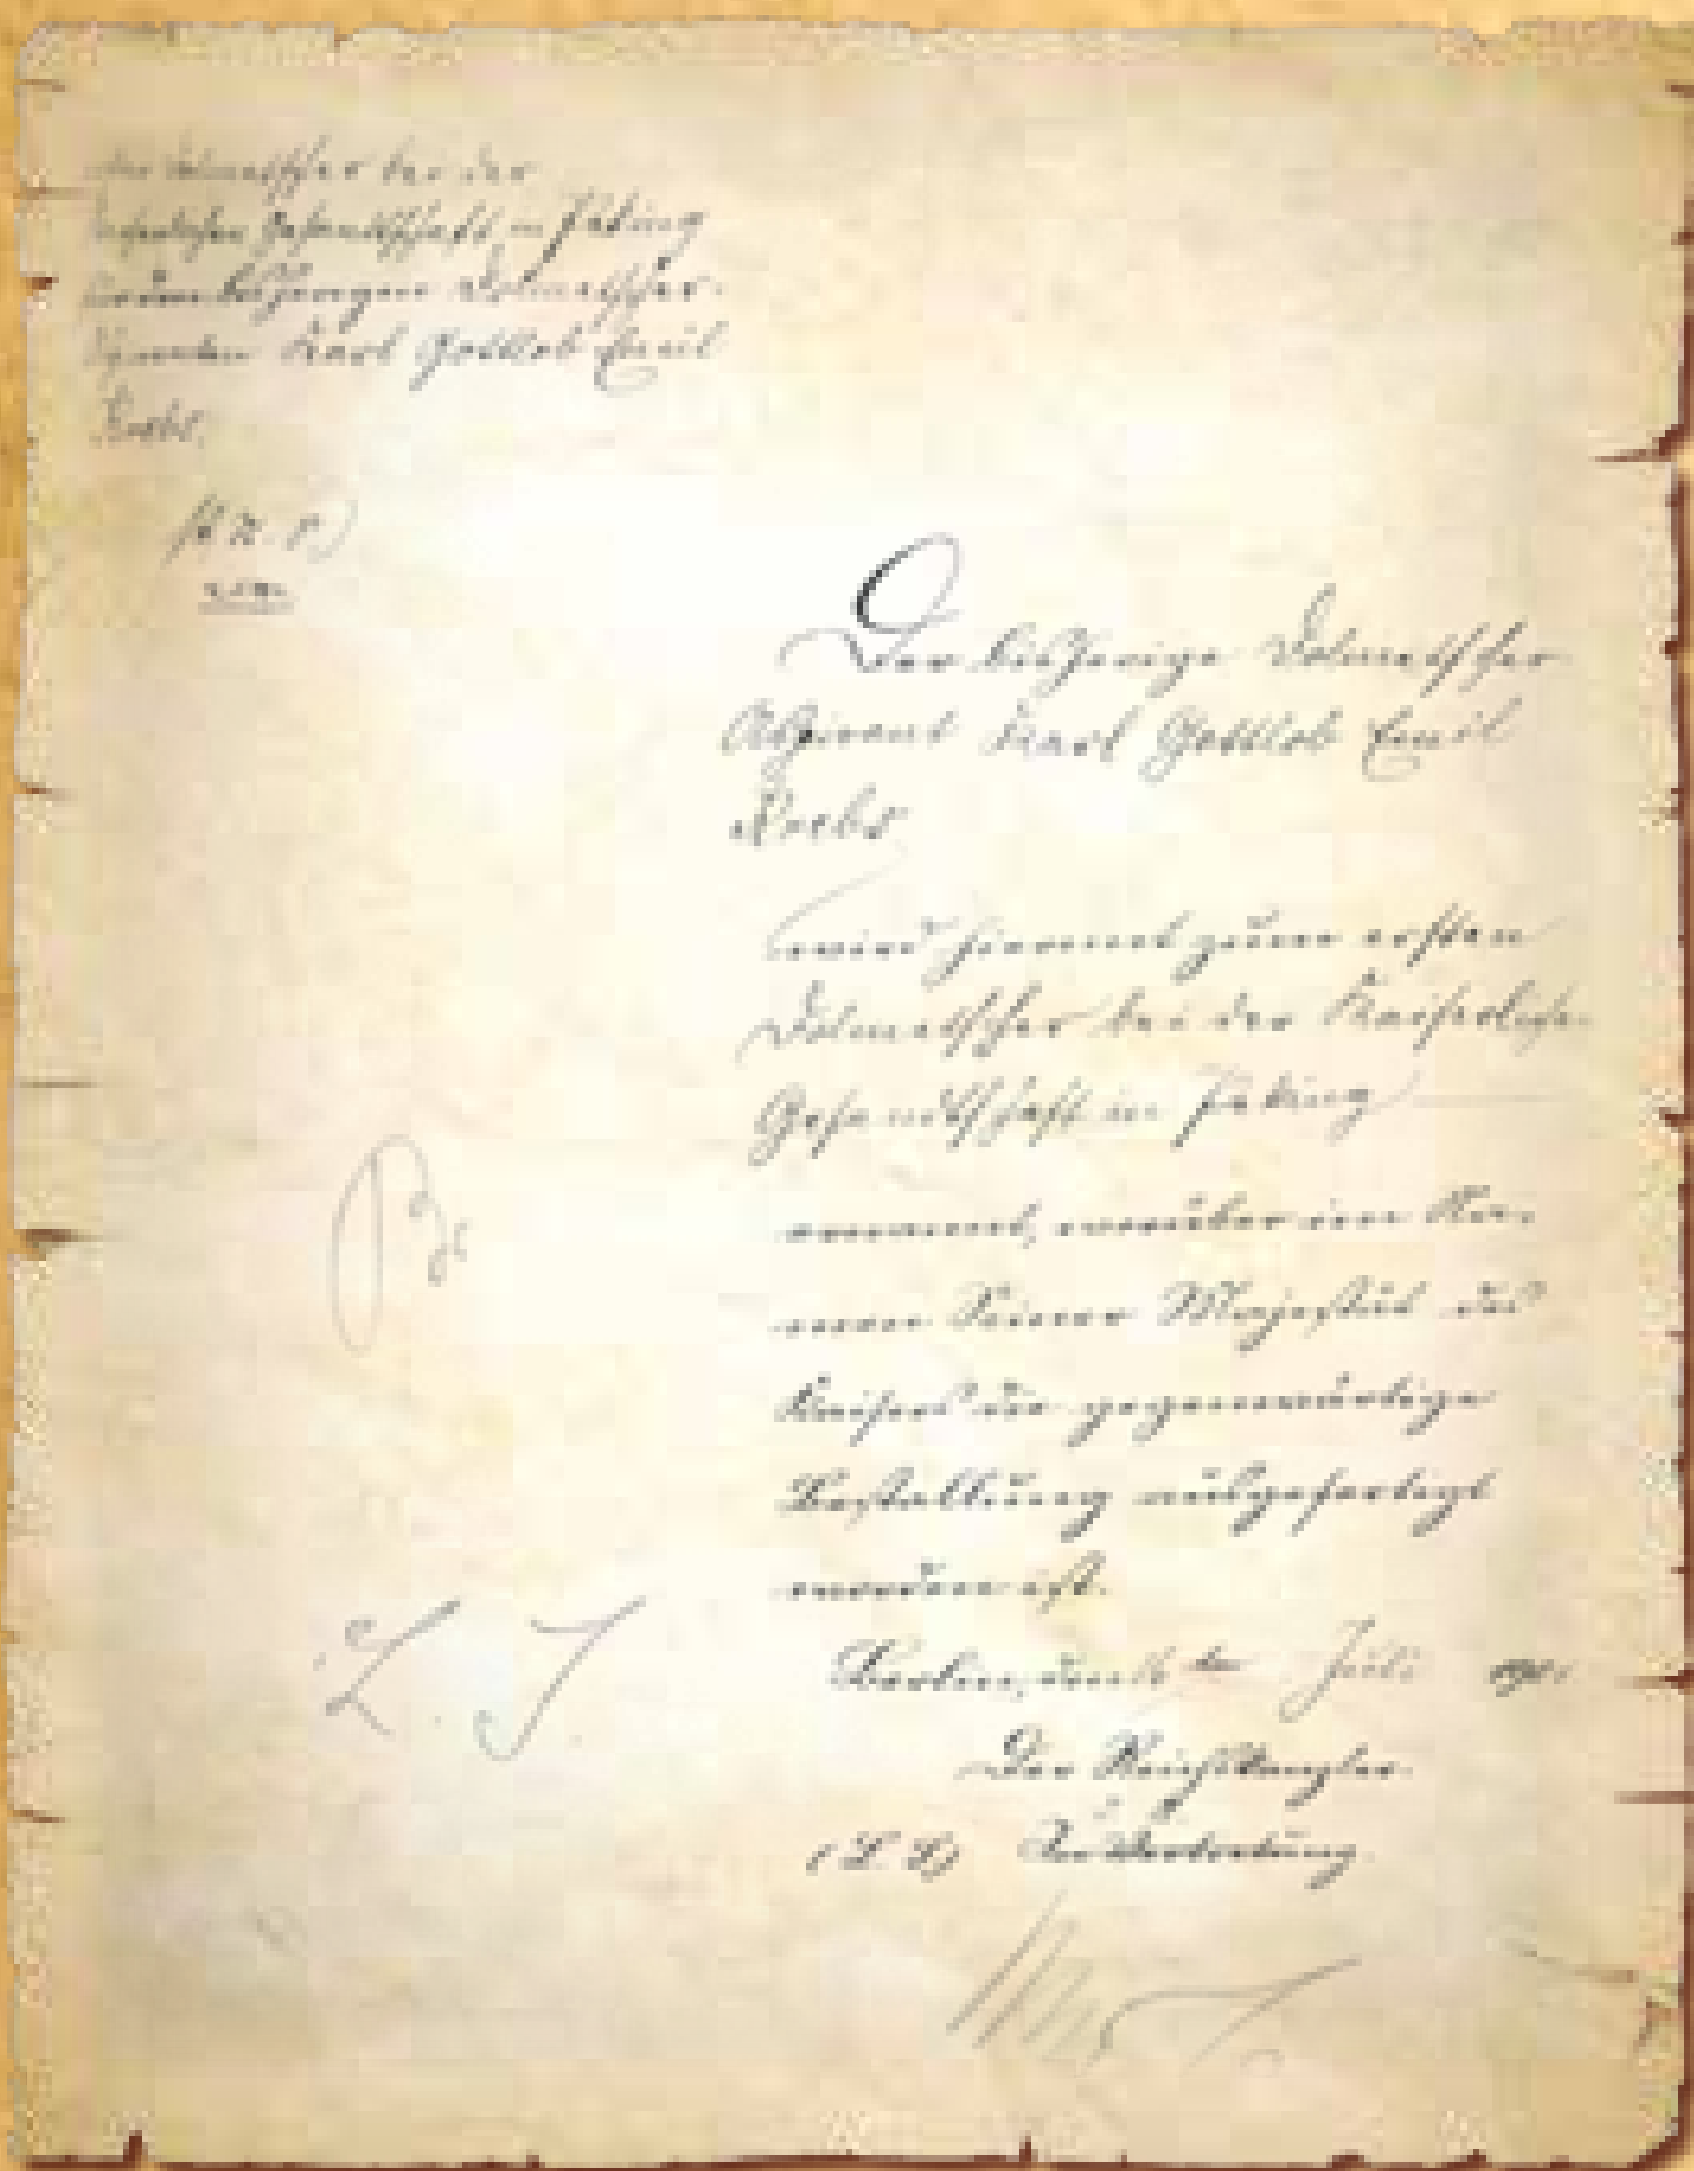 Dolmetscher bei der
Gesandtschaft in Peking
bisherigen Dolmetscher-
Karl Gottlob Emil
Krebs.
Der bisherige Dolmetscher-
Aspirant Karl Gottlob Emil
Krebs
wird hiermit zum ersten
Dolmetscher bei der Kaiserlichen
Gesandtschaft in Peking
ernannt, worüber im Na-
men Seiner Majestät des
Kaisers die gegenwärtige
Bestallung ausgefertigt
worden ist.
Berlin, den Juli 1901
Der Reichskanzler.
(L. S.) In Vertretung.